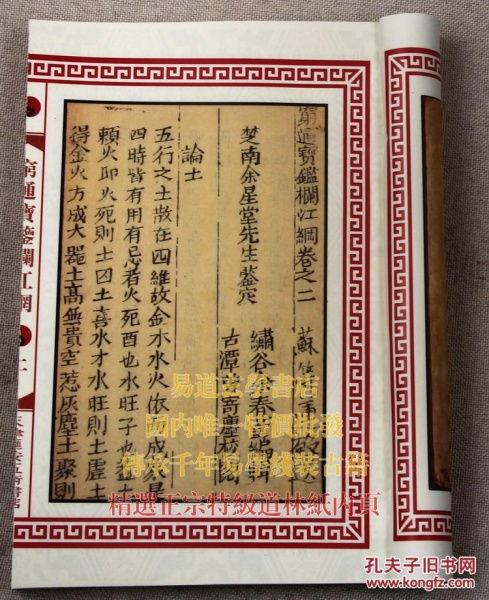 窮通寶鑑欄江網卷之二
楚南余星堂先生鑒定
繡谷
春
編輯
古潭
寄靈校閱
論土
五行之土散在四維故金木水火依
成象是
四時皆有用有忌者火死酉也水旺子也蓋
賴火印火死則土囚土喜水才水旺則土虛土
得金火方成大器土高無貴空惹灰塵土聚則
窮通寶鑒欄江網
易道玄學書店
國內唯一特價批發
傳承千年易學綫裝古籍
精選正宗特級道林紙內頁
孔夫子旧书网
www.kongfz.com